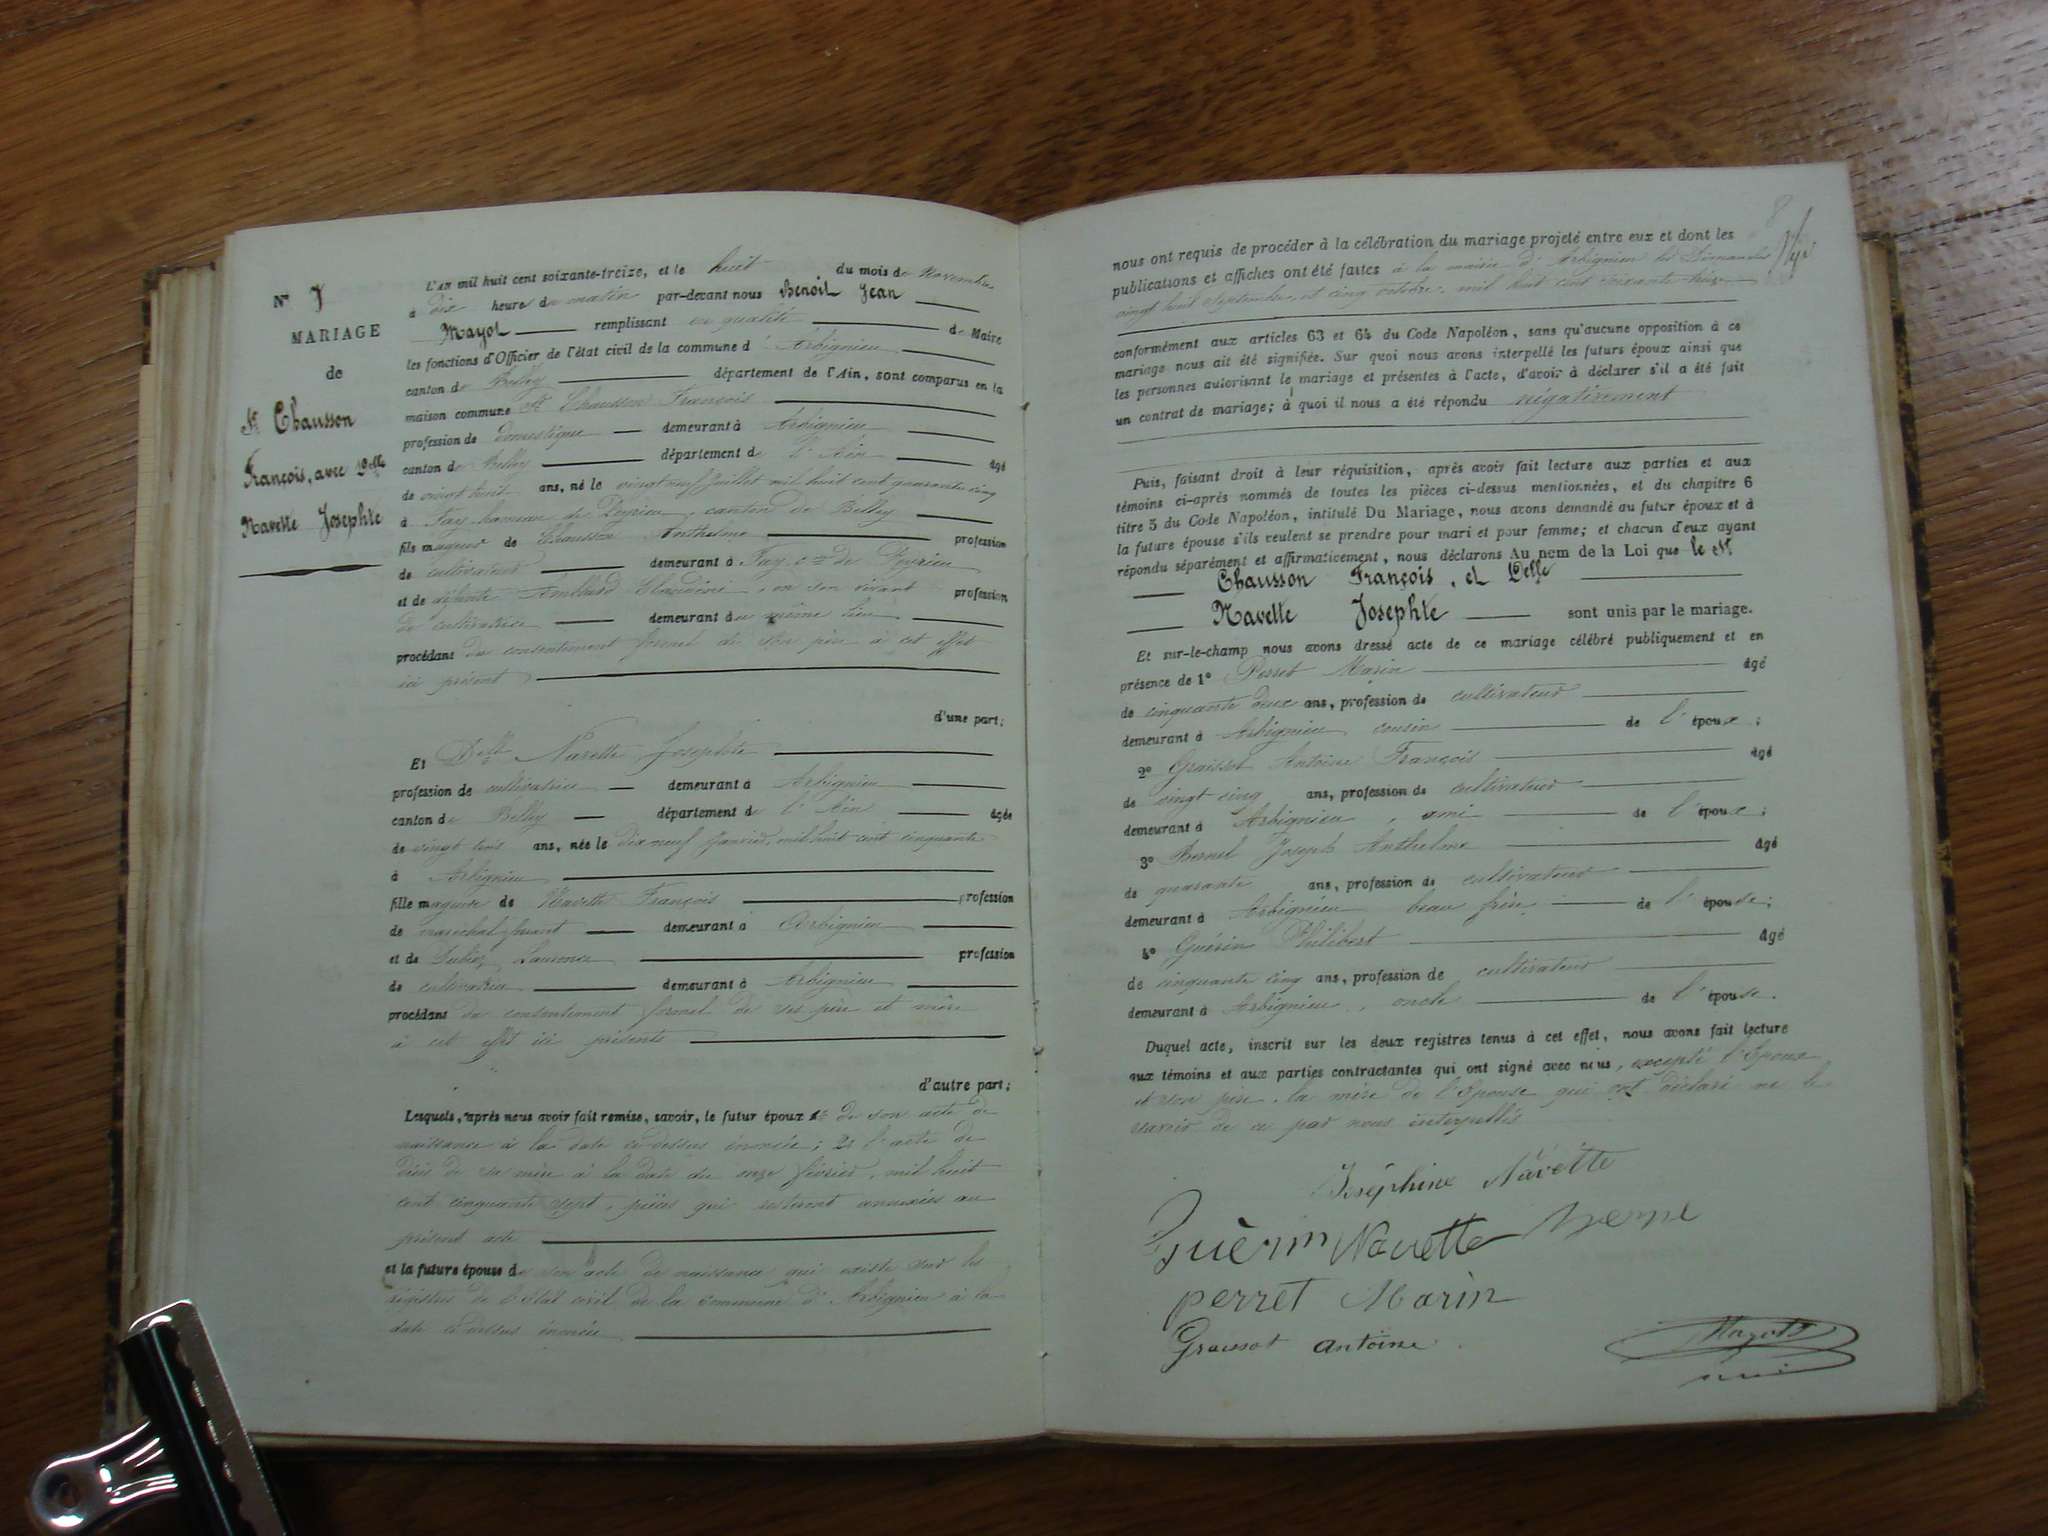 N° 7
MARIAGE
de
Sr Chausson
François, avec Delle
Navette Josephte
L'an mil huit cent soixante-treize, et le huit du mois de Novembre
à dix heure du matin par-devant nous Benoit Jean
Mayot remplissant en qualité de Maire
les fonctions d'Officier de l'état civil de la commune d'Arbignieu
canton de Belley département de l'Ain, sont comparus en la
maison commune Sr Chausson François
profession de domestique demeurant à Arbignieu
canton de Belley département de l'Ain âgé
de vingt huit ans, né le vingt neuf Juillet mil huit cent quarante cinq
à Fay hameau de Peyrieu, canton de Belley
fils majeur de Chausson Anthelme profession
de cultivateur demeurant à Fay, cne de Peyrieu
et de défunte Claudine, en son vivant profession
de cultivatrice demeurant au même lieu
procédant du consentement formel de son père à cet effet
ici présent
d'une part;
Et Delle Navette Josephte
profession de cultivatrice demeurant à Arbignieu
canton de Belley département de l'Ain âgée
de vingt trois ans, née le dix neuf Janvier, mil huit cent cinquante
à Arbignieu
fille majeure de Navette François profession
de maréchal ferrant demeurant à Arbignieu
et de Laurence profession
de cultivatrice demeurant à Arbignieu
procédant du consentement formel de ses père et mère
à cet effet ici présents
d'autre part;
Lesquels, après nous avoir fait remise, savoir, le futur époux 1° de son acte de
naissance à la date ci-dessus énoncée; 2° l'acte de
décès de sa mère à la date du onze février, mil huit
cent cinquante sept, pièces qui resteront annexées au
présent acte
et la future épouse de son acte de naissance qui existe sur les
registres de l'Etat civil de la Commune d'Arbignieu à la
date ci-dessus énoncée
8
nous ont requis de procéder à la célébration du mariage projeté entre eux et dont les
publications et affiches ont été faites à la mairie d'Arbignieu les Dimanches
vingt huit Septembre, et cinq octobre, mil huit cent soixante treize
conformément aux articles 63 et 64 du Code Napoléon, sans qu'aucune opposition à ce
mariage nous ait été signifiée. Sur quoi nous avons interpellé les futurs époux ainsi que
les personnes autorisant le mariage et présentes à l'acte, d'avoir à déclarer s'il a été fait
un contrat de mariage; à quoi il nous a été répondu négativement
Puis, faisant droit à leur réquisition, après avoir fait lecture aux parties et aux
témoins ci-après nommés de toutes les pièces ci-dessus mentionnées, et du chapitre 6
titre 5 du Code Napoléon, intitulé Du Mariage, nous avons demandé au futur époux et à
la future épouse s'ils veulent se prendre pour mari et pour femme; et chacun d'eux ayant
répondu séparément et affirmativement, nous déclarons Au nom de la Loi que le Sr
Chausson François, et Delle
Navette Josephte sont unis par le mariage.
Et sur-le-champ nous avons dressé acte de ce mariage célébré publiquement et en
présence de 1° Perret Marin âgé
de cinquante deux ans, profession de cultivateur
demeurant à Arbignieu cousin de l'époux;
2° Graissot Antoine François âgé
de vingt cinq ans, profession de cultivateur
demeurant à Arbignieu, ami de l'époux;
3° Joseph Anthelme âgé
de quarante ans, profession de cultivateur
demeurant à Arbignieu beau frère de l'épouse;
4° Guérin Philibert âgé
de cinquante cinq ans, profession de cultivateur
demeurant à Arbignieu, oncle de l'épouse.
Duquel acte, inscrit sur les deux registres tenus à cet effet, nous avons fait lecture
aux témoins et aux parties contractantes qui ont signé avec nous, excepté l'Epoux
et son père, la mère de l'Epouse qui ont déclaré ne le
savoir de ce par nous interpellés
Joséphine Navette
Guèrin Navette
perret Marin
Graissot antoine
Mayot